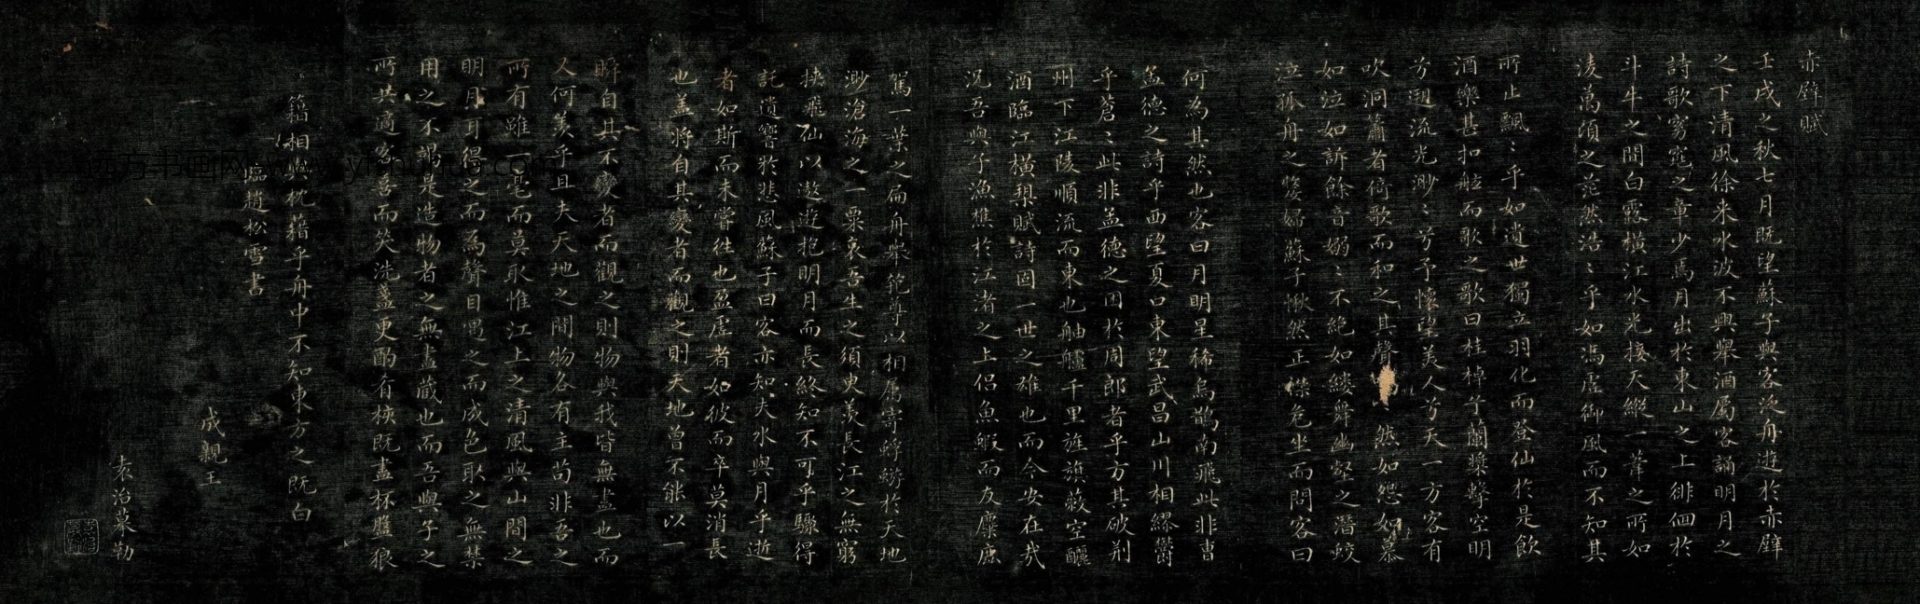 赤壁賦
壬戌之秋七月既望蘇子與客泛舟遊於赤壁
之下清風徐來水波不興舉酒屬客誦明月之
詩歌窈窕之章少焉月出於東山之上徘徊於
斗牛之間白露橫江水光接天縱一葦之所如
凌萬頃之茫然浩〻乎如馮虛御風而不知其
所止飄〻乎如遺世獨立羽化而登仙於是飲
酒樂甚扣舷而歌之歌曰桂棹兮蘭槳擊空明
兮遡流光渺〻兮予懷望美人兮天一方客有
吹洞簫者倚歌而和之其聲嗚〻然如怨如慕
如泣如訴餘音嫋〻不絕如縷舞幽壑之潛蛟
泣孤舟之嫠婦蘇子愀然正襟危坐而問客曰
何為其然也客曰月明星稀烏鵲南飛此非曹
孟德之詩乎西望夏口東望武昌山川相繆鬱
乎蒼〻此非孟德之困於周郎者乎方其破荊
州下江陵順流而東也舳艫千里旌旗蔽空釃
酒臨江橫槊賦詩固一世之雄也而今安在哉
況吾與子漁樵於江渚之上侶魚蝦而友麋鹿
駕一葉之扁舟舉匏尊以相屬寄蜉蝣於天地
渺滄海之一粟哀吾生之須臾羨長江之無窮
挾飛仙以遨遊抱明月而長終知不可乎驟得
託遺響於悲風蘇子曰客亦知夫水與月乎逝
者如斯而未嘗往也盈虛者如彼而卒莫消長
也蓋將自其變者而觀之則天地曾不能以一
瞬自其不變者而觀之則物與我皆無盡也而
又何羨乎且夫天地之間物各有主苟非吾之
所有雖一毫而莫取惟江上之清風與山間之
明月耳得之而為聲目遇之而成色取之無禁
用之不竭是造物者之無盡藏也而吾與子之
所共適客喜而笑洗盞更酌有核既盡杯盤狼
籍相與枕藉乎舟中不知東方之既白
臨趙松雪書
成親王
袁治摹勒